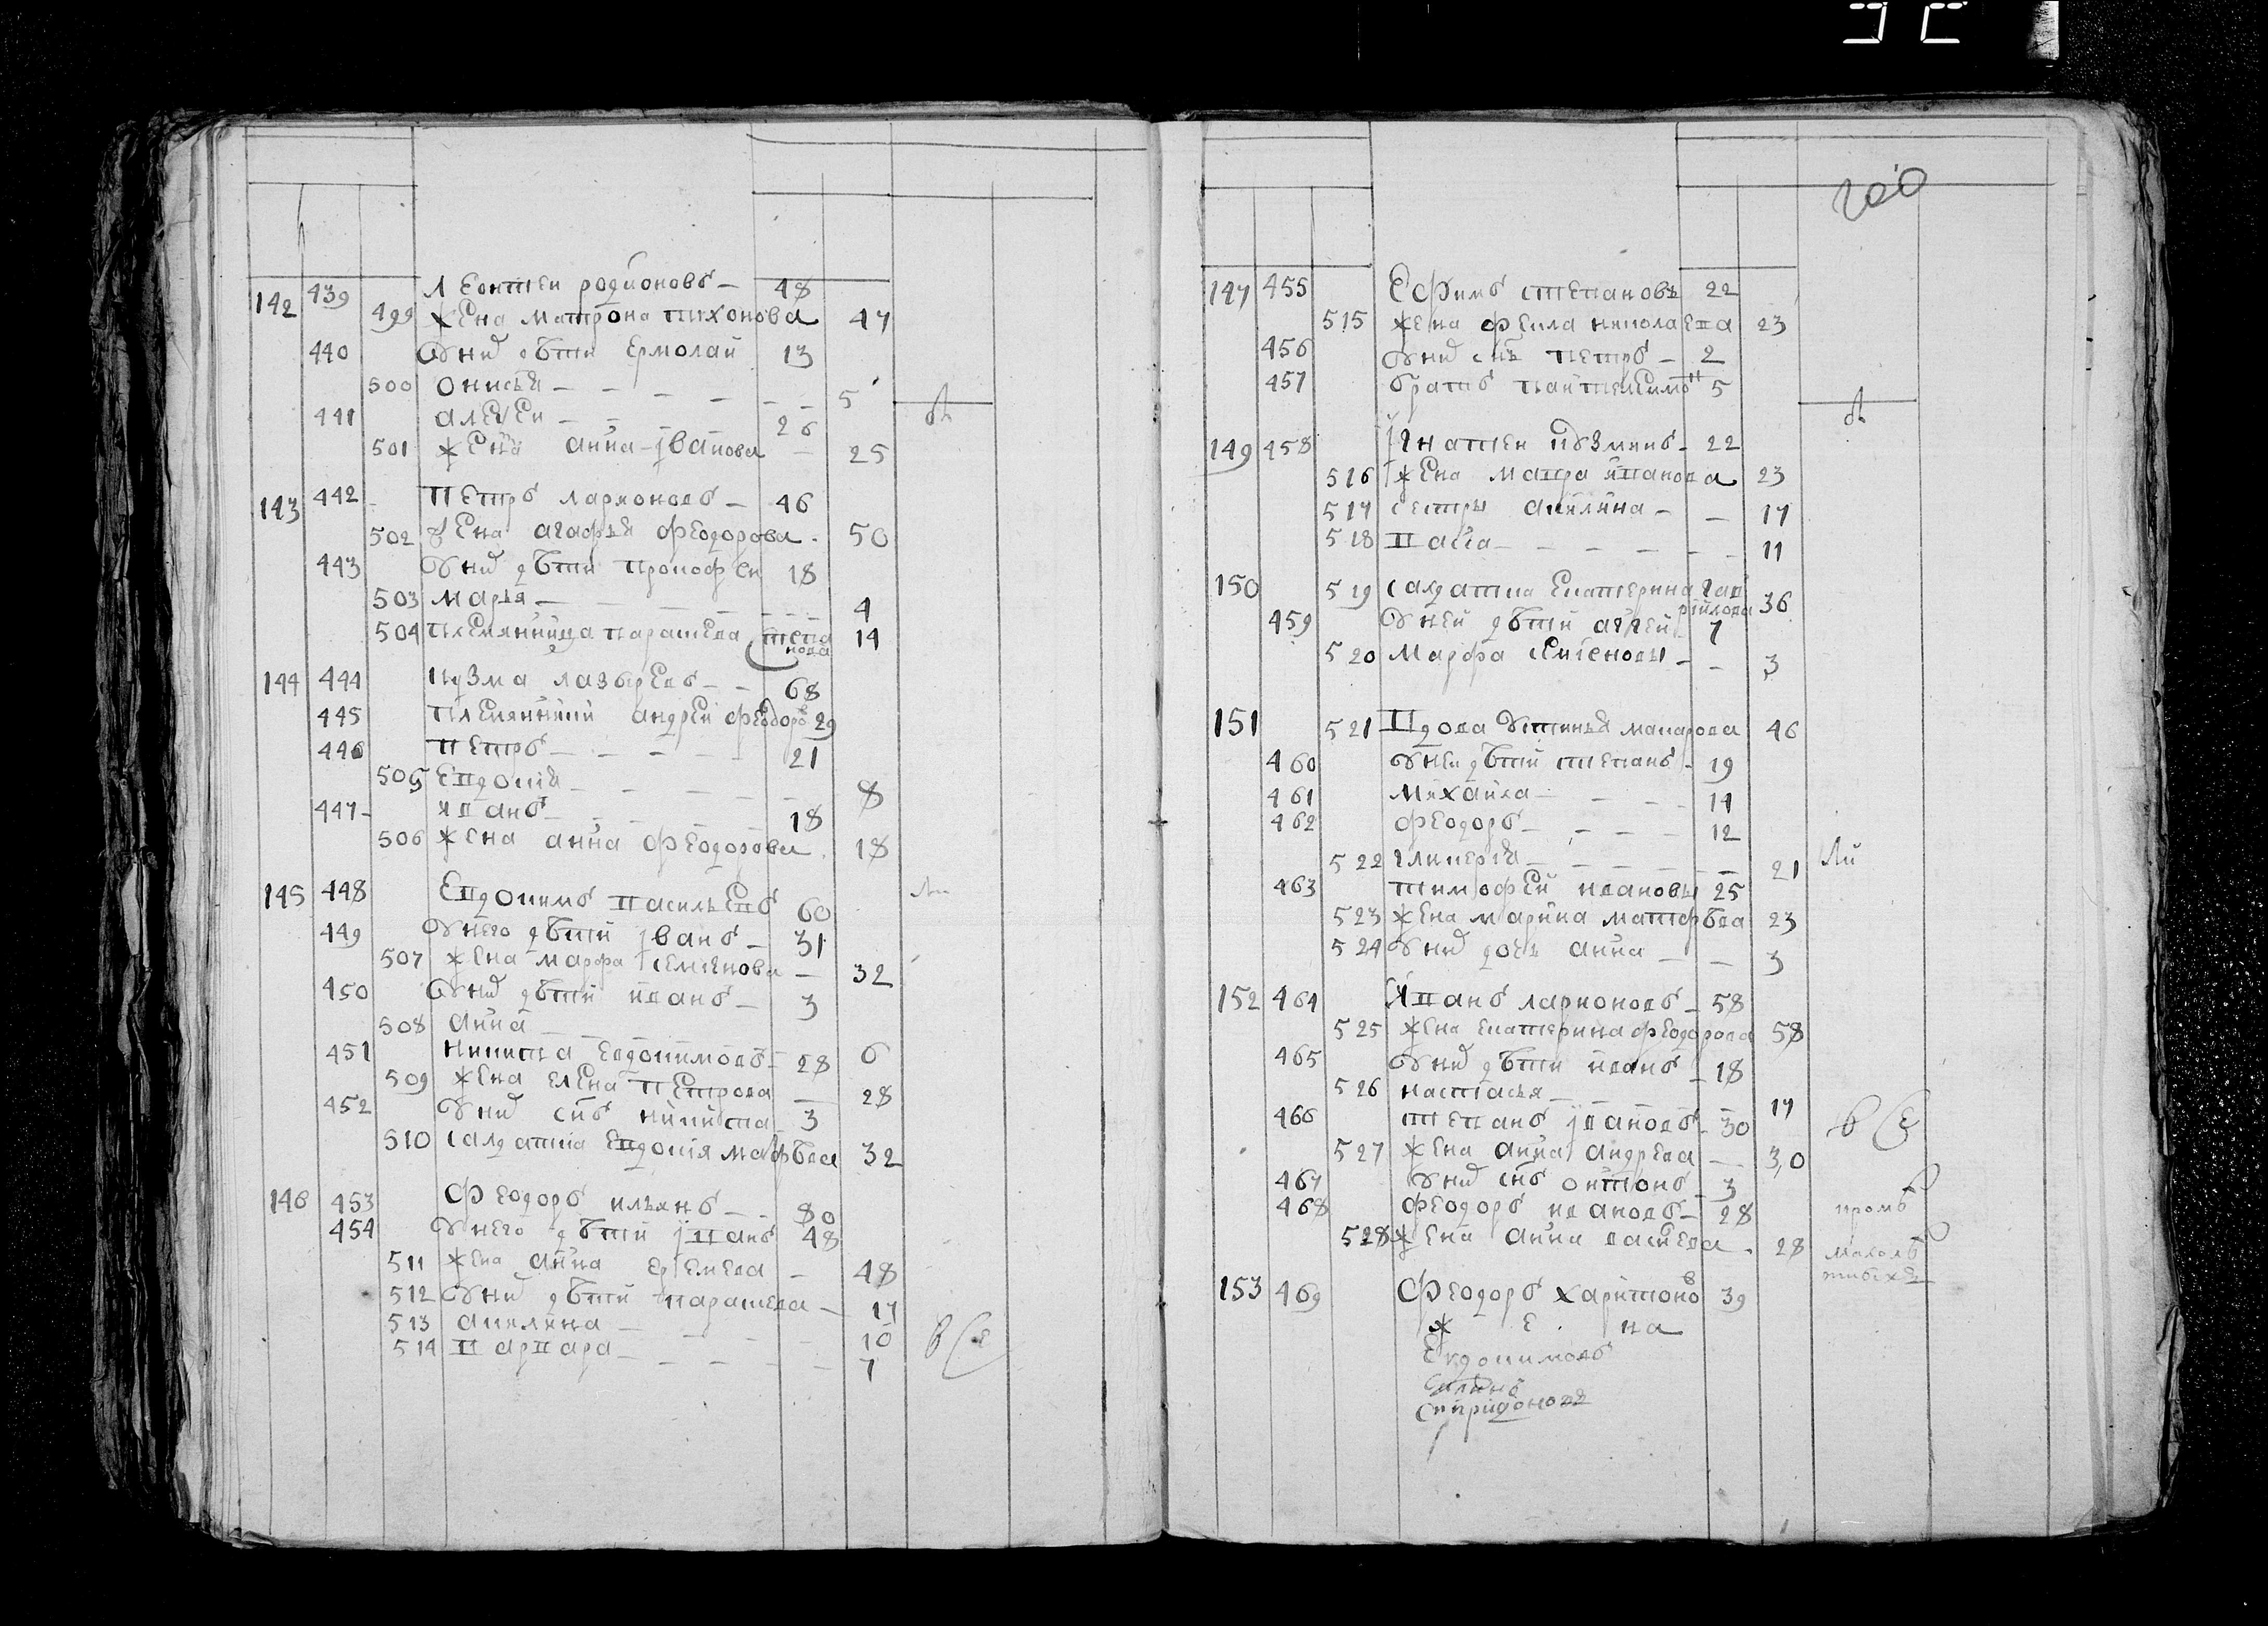 142 439 Леонтеи родионовъ — 48
499 жена матрона тихонова 47
440 Уних дѣти ермолаи 13
500 онисья — 5
441 алеѯеи — 26
501 жена анна іванова — 25
143 442 Петръ ларионовъ — 46
502 жена агафья феодорова 50
443 Уних дѣти прокофеи 18
503 марья — 4
504 племянница парасковея степанова 14
144 444 кузма лазыревъ — 68
445 племянники андреи феодоровъ 29
446 петръ — 21
505 евдокия — 8
447 иванъ — 18
506 жена анна феодорова 18
145 448 Евдокимъ васильевъ 60
449 Унего дѣти іванъ — 31
507 жена марфа семенова — 32
450 Уних дѣти иванъ — 3
508 анна — 6
451 никита евдокимовъ 28
509 жена елена петрова — 28
452 Уних снъ никита 3
510 салдатка евдокия матфѣева 32
146 453 Феодоръ ильинъ — 80
454 Унего дѣти іванъ 48
511 жена анна еремеева — 48
512 Уних дѣти парасковея — 17
513 акилина — 10
514 варвара — 7
все
200
147 455 Ефимъ степановъ 22
515 жена фекла николаева 23
456 Уних снъ петръ — 2
457 братъ 5
149 458 Игнатеи кузминъ — 22
516 жена мавра иванова 23
517 сестры акилина — 17
518 васса — 11
150 519 салдатка екатерина гаврилова 36
459 Унеи дѣти 7
520 марфа семеновы — 3
151 521 вдова устинья макарова 46
460 Унеи дѣти степанъ 19
461 михаила — 14
462 феодоръ — 12
522 гликерия — 21
463 тимофеи ивановы 25
523 жена марина матфѣева 23
524 Уних дочь анна — 3
152 464 Иванъ ларионовъ — 58
525 жена екатерина феодорова 58
465 Уних дѣти иванъ — 18
526 настасья — 17
466 степанъ івановъ — 30
все
527 жена анна андреева — 30
467 Уних снъ онтонъ — 3
468 феодоръ ивановъ — 28
кромѣ
528 жена анна васильева 28
малолѣтныхъ
153 469 Феодоръ харитоновъ 39
ж е на
Евдокимовъ
Спиридоновъ